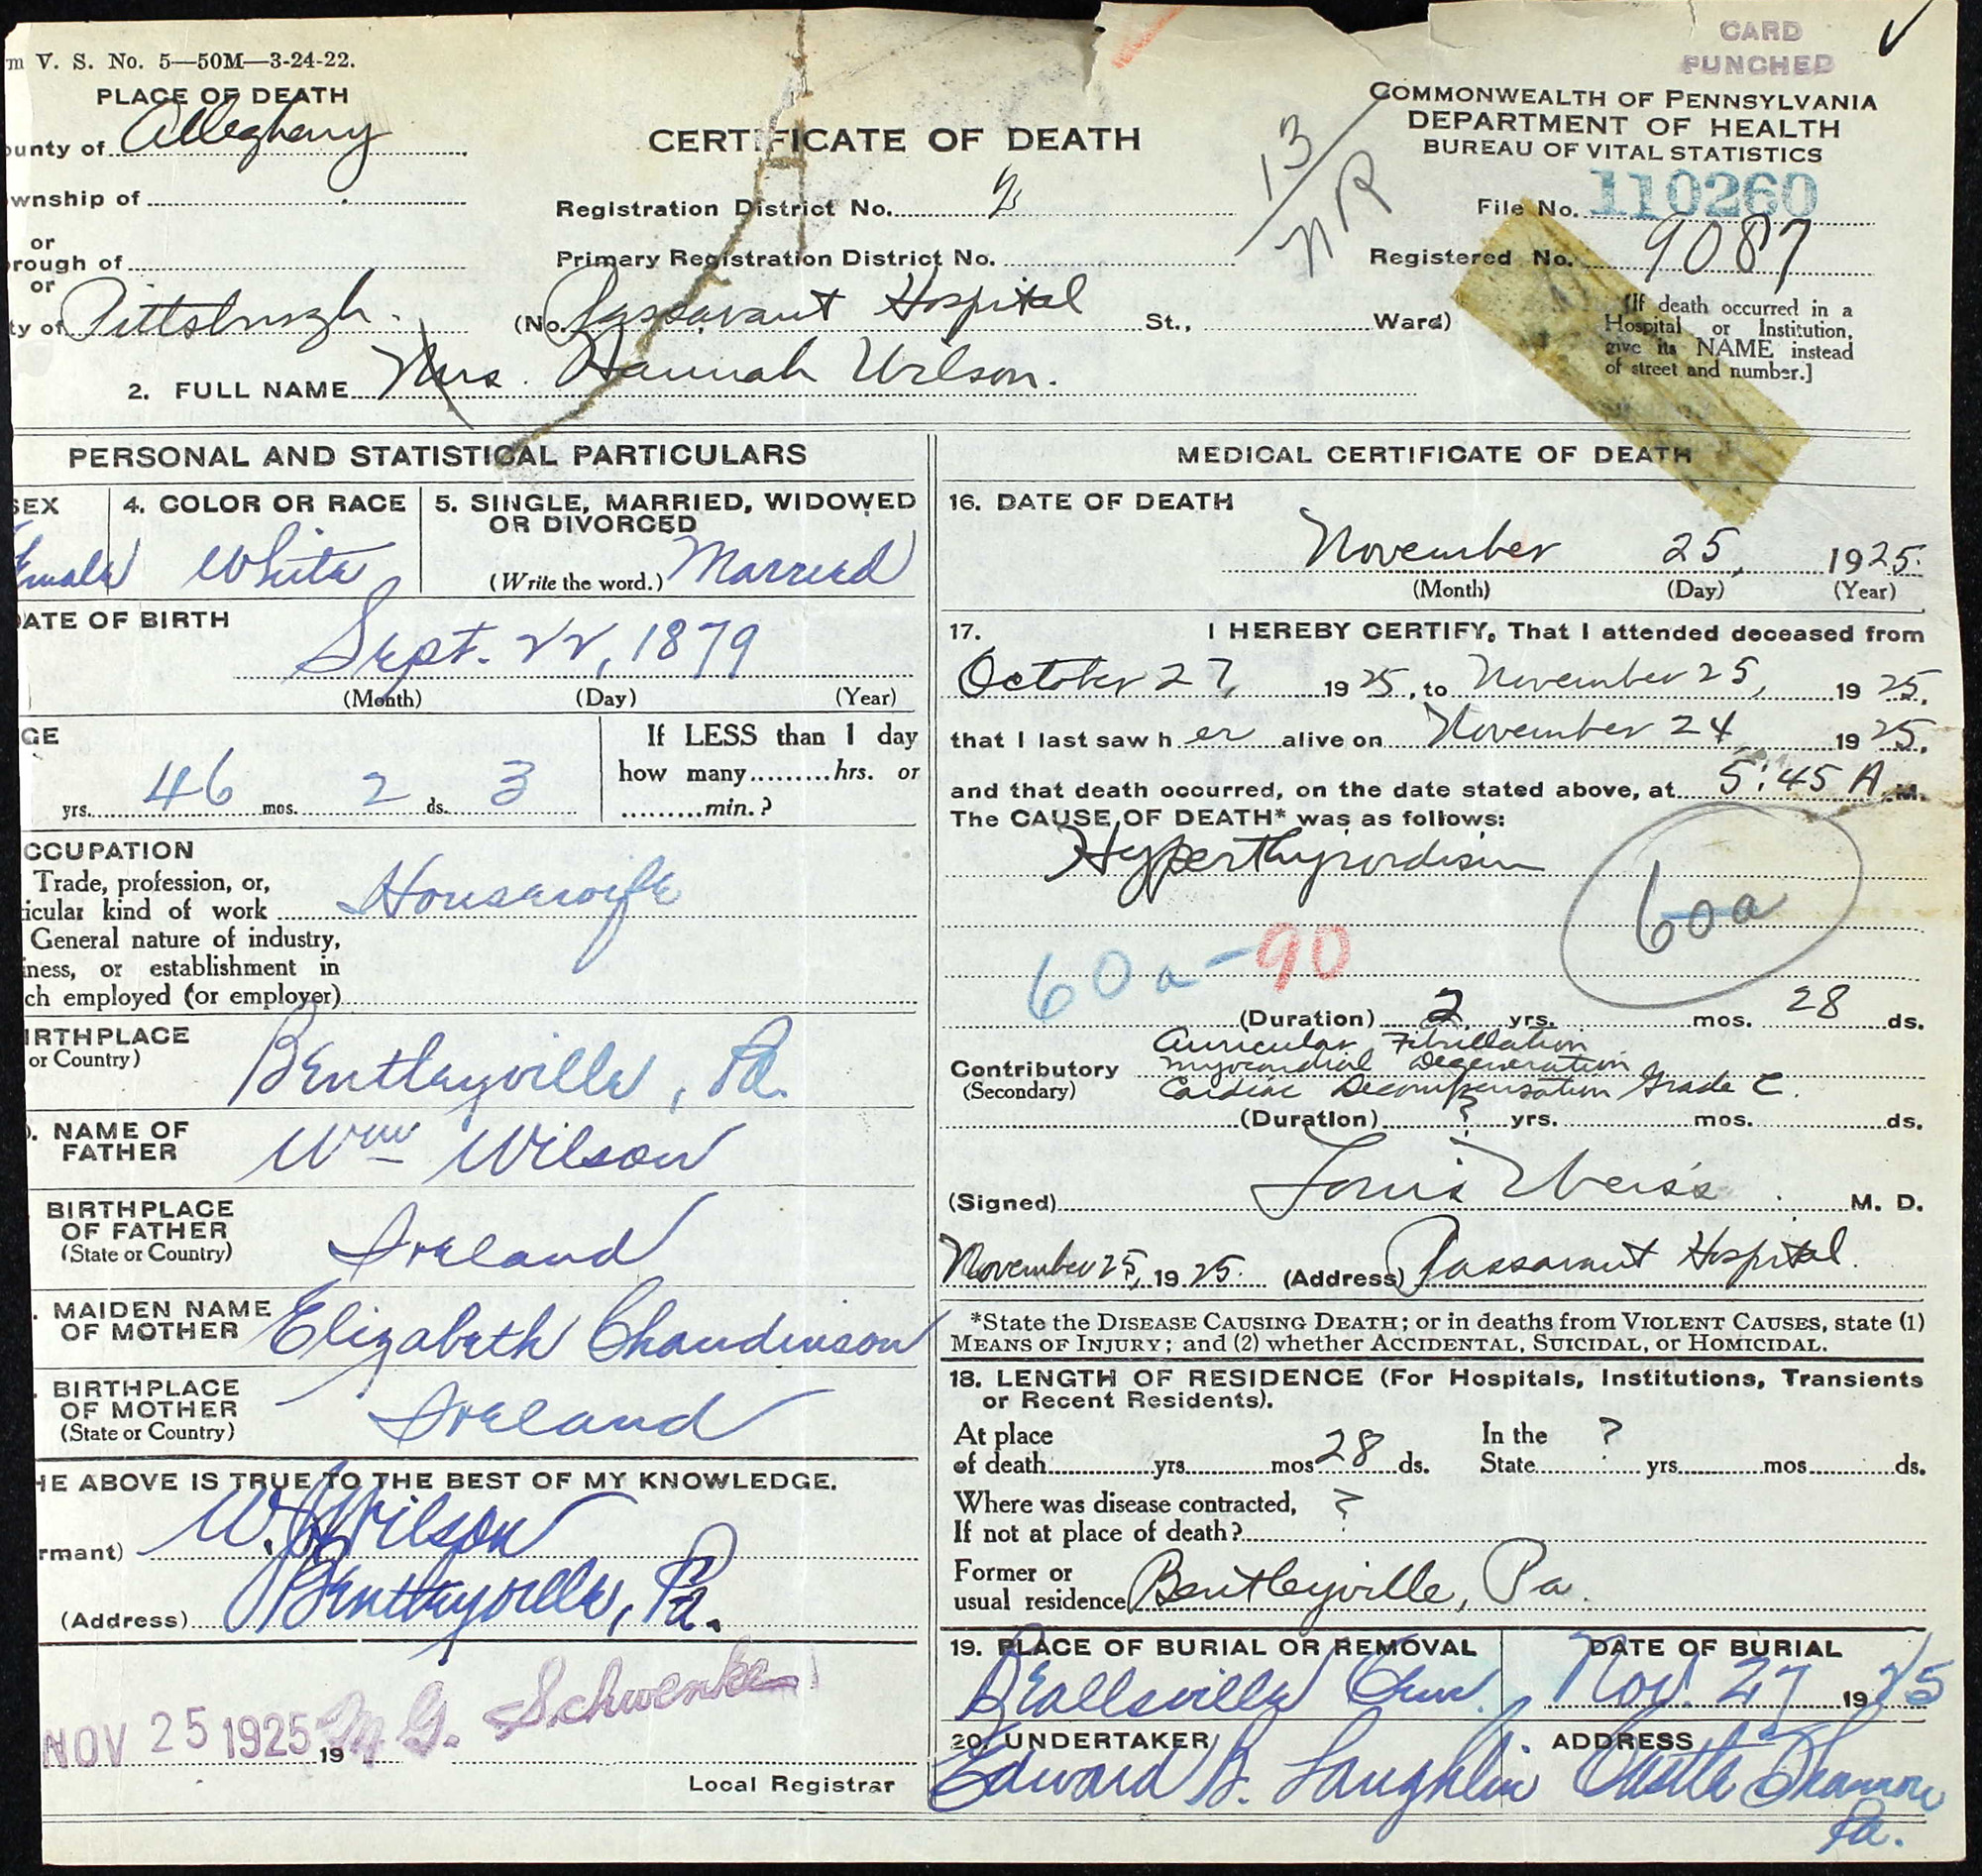 CARD
PUNCHED
m V. S. No. 5—50M—3-24-22.
PLACE OF DEATH
ounty of Allegheny
wnship of
or
rough of
or
ty of Pittsburgh.
CERTIFICATE OF DEATH
Registration District No.
Primary Registration District No.
(No. Passavant Hospital St., Ward)
13
NR
COMMONWEALTH OF PENNSYLVANIA
DEPARTMENT OF HEALTH
BUREAU OF VITAL STATISTICS
File No. 110260
Registered No. 9087
[If death occurred in a
Hospital or Institution,
give its NAME instead
of street and number.]
2. FULL NAME Mrs. Hannah Wilson.
PERSONAL AND STATISTICAL PARTICULARS
SEX
emale
4. COLOR OR RACE
White
5. SINGLE, MARRIED, WIDOWED
OR DIVORCED
(Write the word.) Married
DATE OF BIRTH
Sept. 22, 1879
(Month) (Day) (Year)
GE
yrs. 46 mos. 2 ds. 3
If LESS than 1 day
how many hrs. or
min.?
CCUPATION
Trade, profession, or,
icular kind of work Housewife
General nature of industry,
iness, or establishment in
ch employed (or employer)
IRTHPLACE
or Country)
Bentleyville, Pa.
. NAME OF
FATHER
Wm Wilson
BIRTHPLACE
OF FATHER
(State or Country)
Ireland
. MAIDEN NAME
OF MOTHER
Elizabeth
. BIRTHPLACE
OF MOTHER
(State or Country)
Ireland
HE ABOVE IS TRUE TO THE BEST OF MY KNOWLEDGE.
rmant) W. Wilson
(Address) Bentleyville, Pa.
NOV 25 1925 19 M. G. Schwenke
Local Registrar
MEDICAL CERTIFICATE OF DEATH
16. DATE OF DEATH
November 25, 1925.
(Month) (Day) (Year)
17. I HEREBY CERTIFY, That I attended deceased from
October 27, 1925, to November 25, 1925,
that I last saw her alive on November 24 1925,
and that death occurred, on the date stated above, at 5:45 A. M.
The CAUSE OF DEATH* was as follows:
Hyperthyroidism
60a
60a-90
(Duration) 2 yrs. mos. 28 ds.
Contributory
(Secondary)
Auricular Fibrillation
Myocardial Degeneration
Cardiac Decompensation Grade C.
(Duration) ? yrs. mos. ds.
(Signed) Louis Weiss M. D.
November 25, 1925. (Address) Passavant Hospital.
*State the DISEASE CAUSING DEATH; or in deaths from VIOLENT CAUSES, state (1)
MEANS OF INJURY; and (2) whether ACCIDENTAL, SUICIDAL, or HOMICIDAL.
18. LENGTH OF RESIDENCE (For Hospitals, Institutions, Transients
or Recent Residents).
At place
of death yrs. mos 28 ds.
In the
State ? yrs. mos. ds.
Where was disease contracted,
If not at place of death? ?
Former or
usual residence Bentleyville, Pa.
19. PLACE OF BURIAL OR REMOVAL
Beallsville Cem.
DATE OF BURIAL
Nov. 27 1925
20. UNDERTAKER
Edward B. Laughlin
ADDRESS
Castle Shannon
Pa.